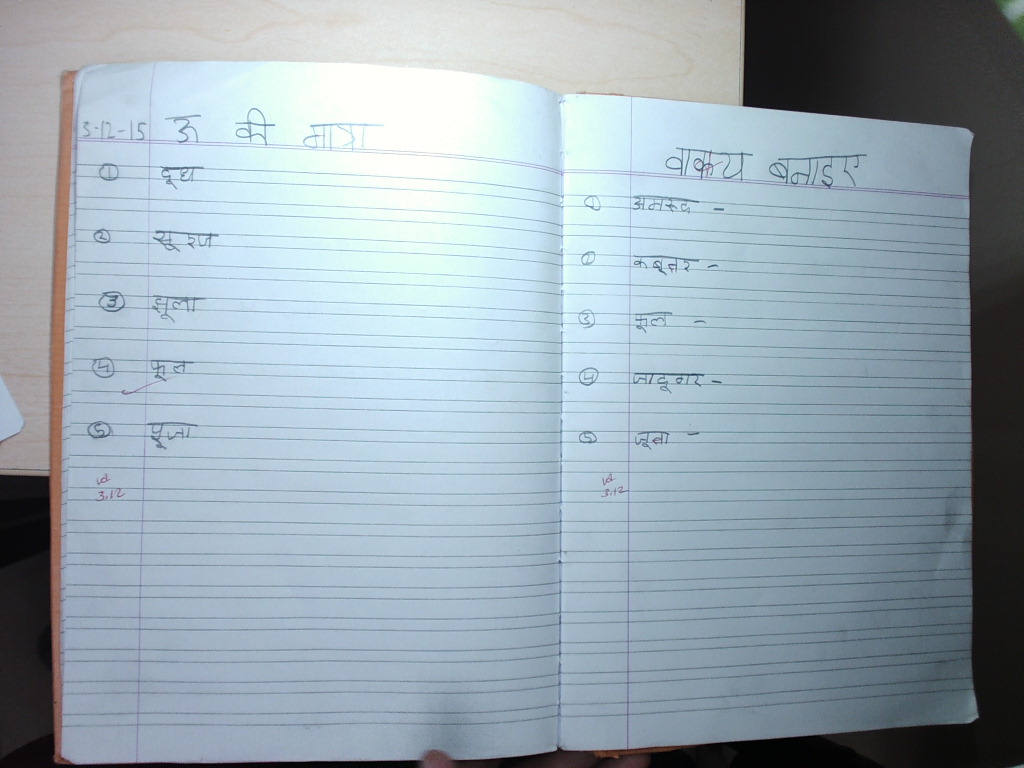 3-12-15 ऊ की मात्रा
① दूध
② सूरज
③ झूला
④ फूल
⑤ पूजा
3.12
वाक्य बनाइए
① अमरूद -
① कबूतर -
③ फूल -
④ जादूगर -
⑤ जूता -
3.12